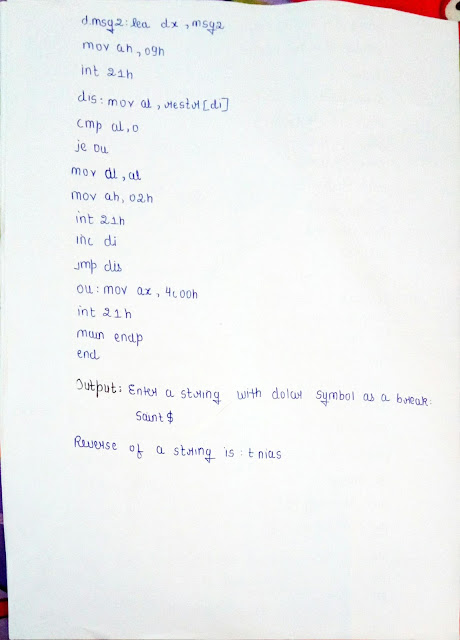 dmsg2: lea dx, msg2
mov ah, 09h
int 21h
dis: mov al, restr[di]
cmp al, 0
je ou
mov dl, al
mov ah, 02h
int 21h
inc di
jmp dis
ou: mov ax, 4c00h
int 21h
main endp
end
Output: Enter a string with dolar symbol as a break:
Saint $
Reverse of a string is: tnias